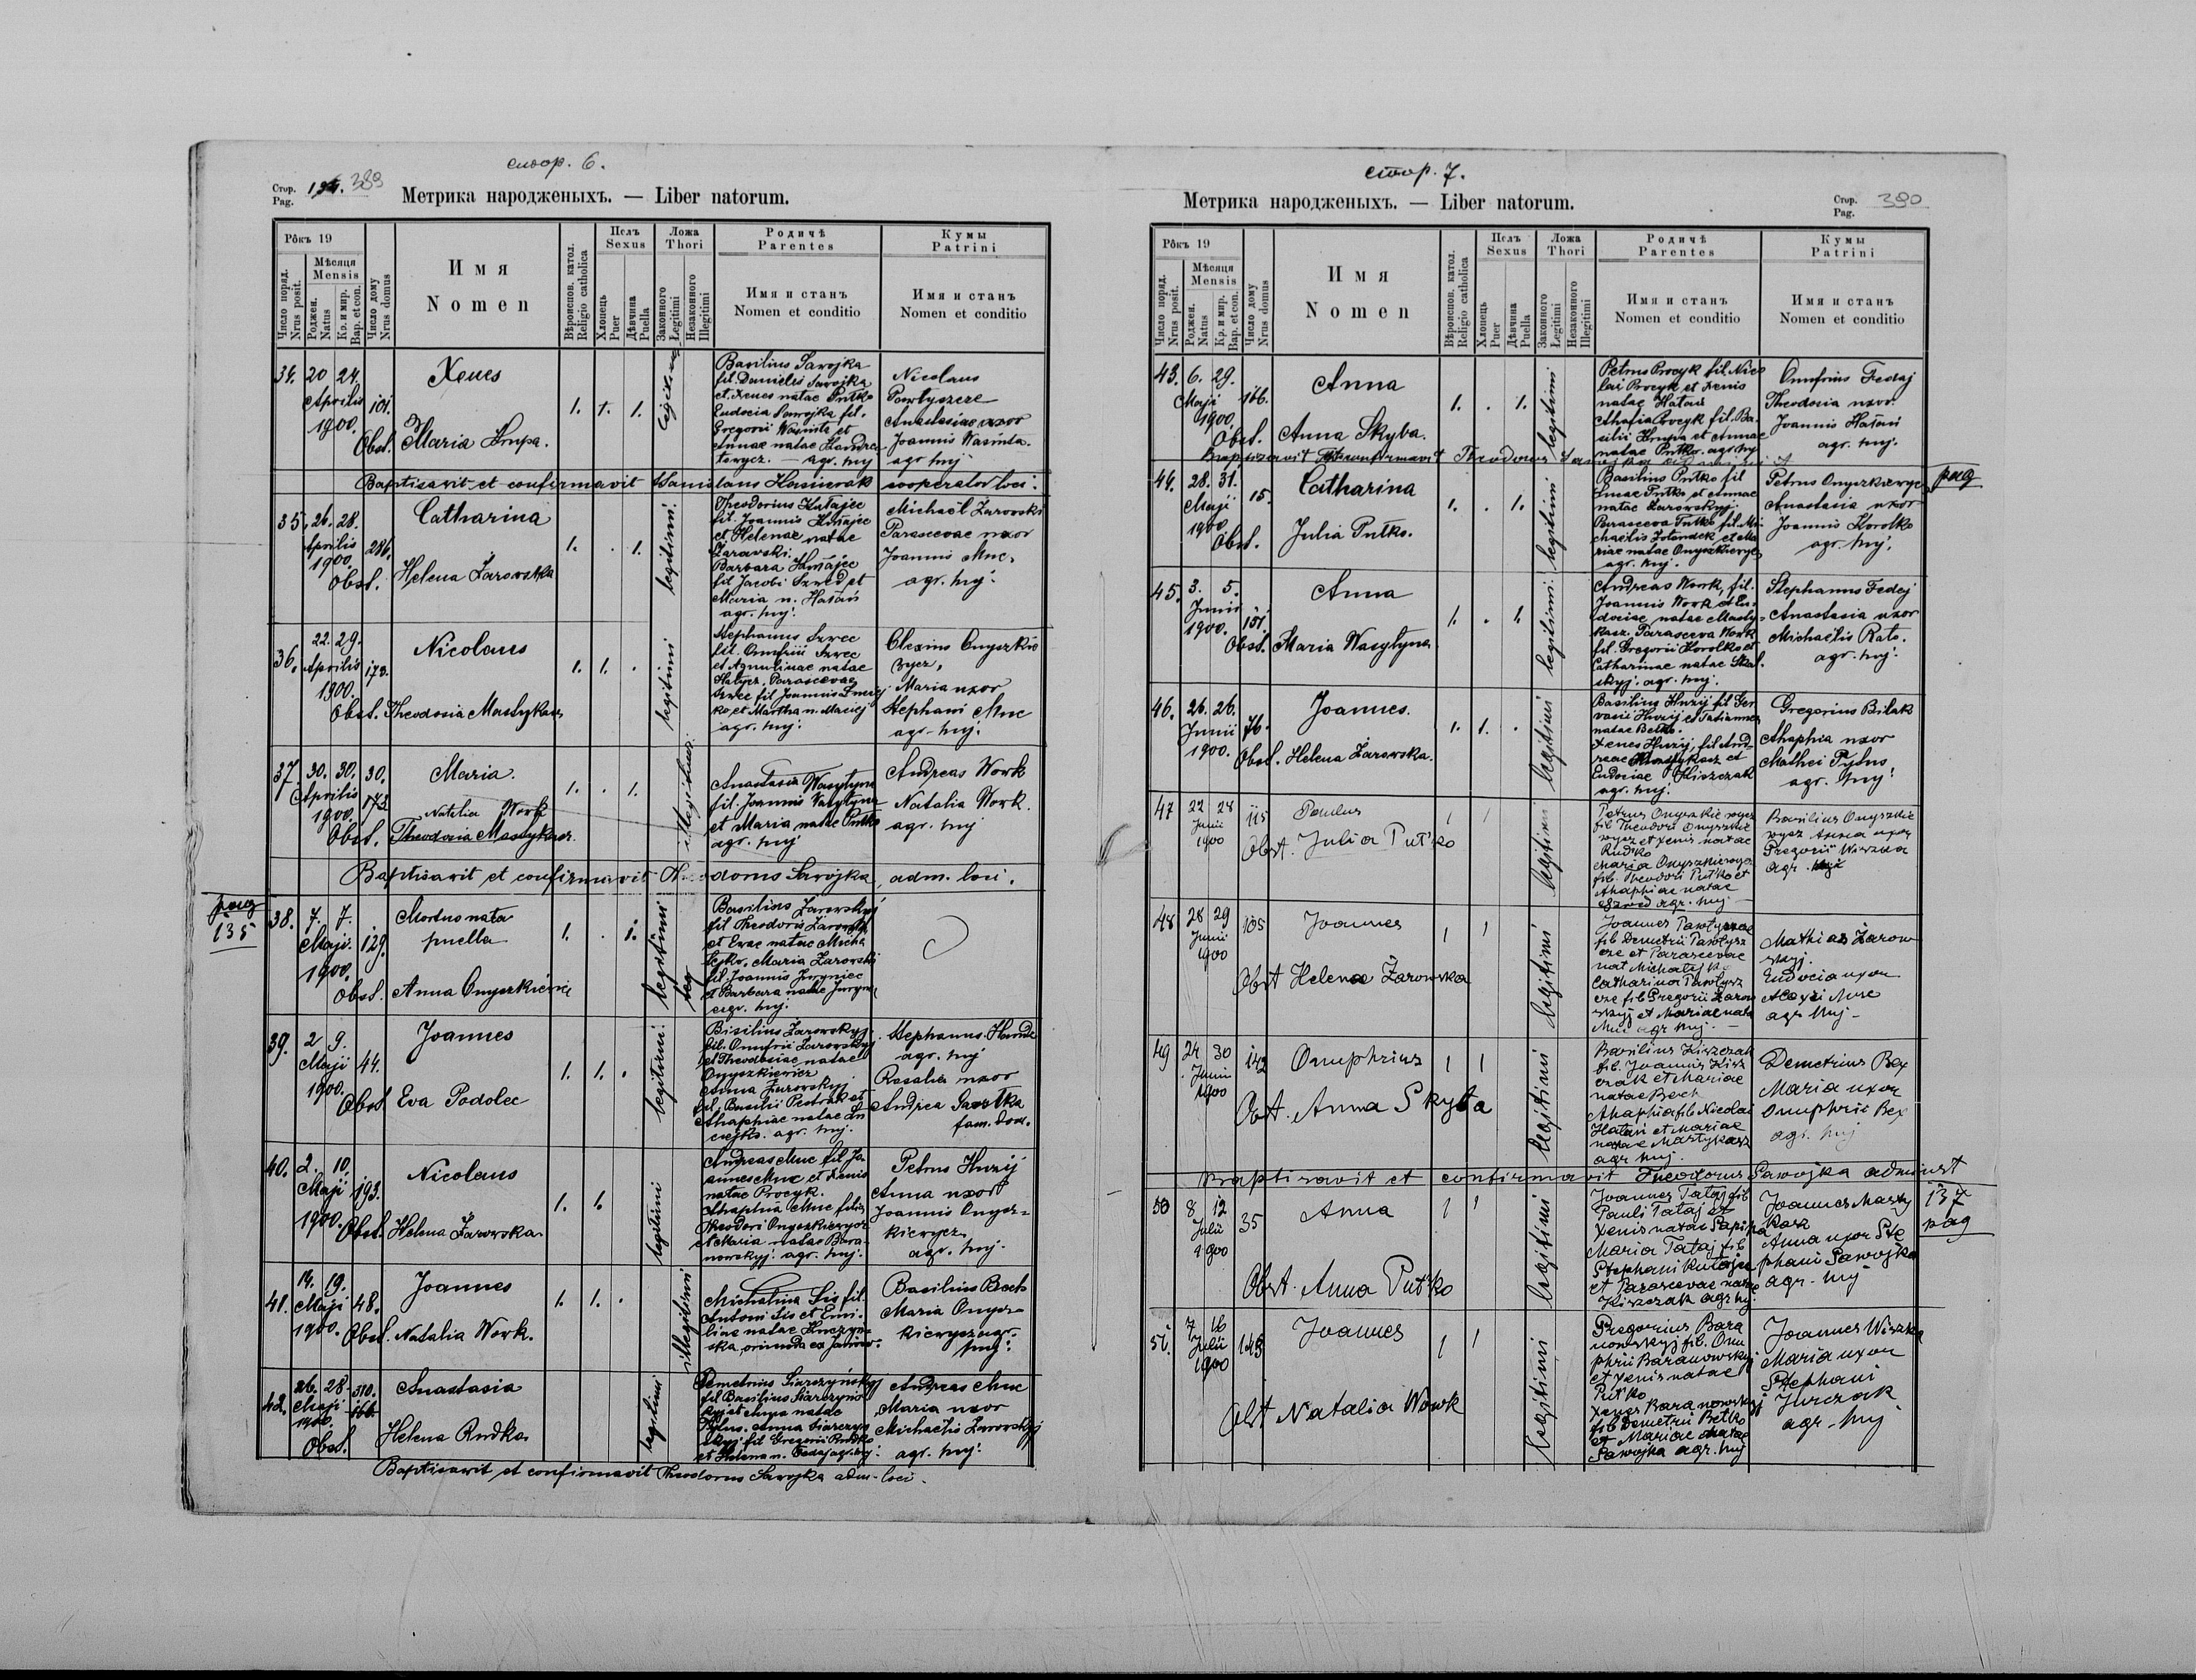 стор. 6.
Стор.
Pag.
389
Метрика народженыхъ. — Liber natorum.
Рôкъ 19
Число поряд.
Nrus posit.
Мѣсяця
Mensis
Роджен.
Natus
Кр. и мир.
Bap. et con.
Число дому
Nrus domus
Имя
Nomen
Вѣроиспов. катол.
Religio catholica
Полъ
Sexus
Хлопець
Puer
Дѣвчина
Puella
Ложа
Thori
Законного
Legitimi
Незаконного
Illegitimi
Родичѣ
Parentes
Имя и станъ
Nomen et conditio
Кумы
Patrini
Имя и станъ
Nomen et conditio
34. 20 24.
Aprilis
1900.
101.
Xenes
Obst. Maria
1. 1. 1.
legitimi
Basilius Savojka
fil. Danielis Savojka
et Xenes natae Putko
Eudocia Savojka fil.
Gregorii
Annae natae
agr. huj
Nicolaus
Anastasiae uxor
Joannis
agr huj
Baptisavit et confirmavit cooperator loci.
35. 26. 28.
Aprilis
1900.
286.
Catharina
Obst. Helena Żarowska
1. . 1.
legitimi.
Theodorius
fil. Joannis
et Helenae natae
Żarowski.
Barbara
fil Jacobi Szwed et
Maria n. Hatań
agr. huj.
Michaël Żarowski
Parascevae uxor
Joannis Muc.
agr. huj.
36. 22. 29.
Aprilis
1900.
173.
Nicolaus
Obst. Theodosia Mastykasz
1. 1. .
legitimi
Stephanus Szwec
fil. Onufrii Szwec
natae
Parascevae
Szwec fil Joannis
et Martha n. Maciej
agr. huj.
Olexius Onyszkie
wycz,
Maria uxor
Stephani Muc
agr. huj.
37. 30. 30.
Aprilis
1900.
30.
173.
Maria.
Natalia Work
Obst. Theodosia Mastykasz.
1. . 1.
illegitimi
Anastasia Wasylyna
fil. Joannis Wasylyna
et Maria natae Putko
agr. huj
Andreas Work
Natalia Work.
agr. huj
Baptisavit et confirmavit Theodorus Savojka, adm. loci.
pag
135
38. 7. 7.
Maji.
1900.
129.
Mortuo nata
puella
Obst. Anna Onyszkiewicz
1. . 1.
legitimi
leg
Basilius Żarowskyj
fil Theodoris Żarowskyj
et Evae natae
Maria Żarowski
fil. Joannis
et Barbara natae
agr. huj.
39. 2 9.
Maji
1900.
44.
Joannes
Obst Eva Podolec
1. 1. .
legitimi.
Basilius Żarowskyj.
fil. Onufrii Żarowskyj
et Theodosiae natae
Onyszkiewicz
Anna Żarowskyj
fil. Basilii et
Ahaphiae natae
agr. huj.
Stephanus
agr. huj
Rosalia uxor
Andrea
fam. dom.
40. 2. 10.
Maji
1900.
193.
Nicolaus
Obst. Helena Żarowska.
1. 1.
legitimi
Andreas Muc fil Jo
annes Muc et Xenis
natae Procyk.
Ahaphia Muc filia
Theodori Onyszkiewycz
et Maria natae Bara-
nowskyj. agr. huj.
Petrus Huzij
Anna uxor
Joannis Onysz=
kiewycz.
agr. huj.
41. 14. 19.
Maji
1900.
48.
Joannes
Obst. Natalia Work.
1. 1. .
illegitimi
Michalina Sis fil.
Antoni Sis et Emi-
liae natae
ska, oriunda ex
Basilius Bech
Maria Onysz=
kiewycz agr.
huj.
42. 26. 28
Maji
1900.
310.
166.
Anastasia
Obst. Helena Rudka
legitimi
Demetrius Siarczyńskyj
fil. Basilius
natae
Pylus. Anna
fil Gregorii Rudko
et Helena n. Fedaj agr. huj.
Andreas Muc
Maria uxor
Michaelis Żarowskyj
agr. huj.
Baptisavit et confirmavit Theodorus Savojka adm. loci.
стор. 7.
Метрика народженыхъ. — Liber natorum.
Стор.
Pag.
390
Рôкъ 19
Число поряд.
Nrus posit.
Мѣсяця
Mensis
Роджен.
Natus
Кр. и мир.
Bap. et con.
Число дому
Nrus domus
Имя
Nomen
Вѣроиспов. катол.
Religio catholica
Полъ
Sexus
Хлопець
Puer
Дѣвчина
Puella
Ложа
Thori
Законного
Legitimi
Незаконного
Illegitimi
Родичѣ
Parentes
Имя и станъ
Nomen et conditio
Кумы
Patrini
Имя и станъ
Nomen et conditio
43. 6. 29.
Maji
1900.
166.
Anna
Obst. Anna Skyba.
1. . 1.
legitimi
Petrus Procyk fil. Nico
lai Procyk et Xenis
natae Hatań
Ahafia Procyk fil. Ba-
silii et Annae
natae Putko. agr. huj
Onufrius Fedaj
Theodosia uxor.
Joannis Hatań
agr. huj.
Baptizavit et confirmavit Theodorus Savojka
pag
44. 28. 31.
Maji
1900
15.
Catharina
Obst. Julia Putko.
1. . 1.
legitimi
Basilius Putko fil
Lucae Putko et Annae
natae Żarowskyj.
Parasceva Putko fil. Mi
chaelis et Ma
riae natae Onyszkiewycz
agr. huj.
Petrus Onyszkiewycz
Anastasia uxor
Joannis Korolko
agr. huj.
45. 3. 5.
Junii
1900.
151.
Anna
Obst. Maria Wasylyna
1. . 1.
legitimi.
Andreas Work, fil.
Joannis Work et Eu-
dociae natae Masty-
kasz. Parasceva Work
fil. Gregorii Korolko et
Catharinae natae Skal.
skyj. agr. huj.
Stephanus Fedej
Anastasia uxor
Michaëlis Rato.
agr. huj.
46. 26. 26.
Junii
1900.
76.
Joannes.
Obst. Helena Żarowska.
1. 1. .
legitimi
Basilius Huzij fil Ger
vasii Huzij et Tatianna
natae Betko.
Xenes Huzij, fil. And-
reae Mastykasz et
Eudociae Kiszczak
agr. huj.
Gregorius Bilak
Ahaphia uxor
Mathei Pylus
agr. huj.
47 22 28
Junii
1900
115
Paulus
Obst. Julia Put'ko
1 1
legitimi
Petrus Onyszkie wycz
fil Theodori Onyszkie
wycz et Xenis natae
Rud'ko
Maria Onyszkiewycz
fil. Theodori Put'ko et
Ahaphiae natae
Szwed agr. huj —
Basilius Onyszkie
wycz Anna uxor
Gregorii Wiszka
agr. huj
48 28 29
Junii
1900
105
Joannes
Obst Helena Żarowska
1 1
legitimi
Joannes Pawłyszcze
fil Demetrii Pawłysz
cze et Parascevae
nat Michatejko
Catharina Pawłysz
cze fil Gregorii Żarow
skyj et Mariae nata
Muc agr huj. —
Mathias Żarow
skyj.
Eudocia uxor
Alexii Muc
agr huj —
49 24 30
Junii
1900
142
Onuphrius
Obst. Anna Skyba
1 1
legitimi
Basilius Kiszczak
fil. Joannis Kisz
czak et Mariae
natae Bech
Ahaphia fil Nicolai
Hatań et Mariae
natae Mastykasz
agr huj.
Demetrius Bex
Maria uxor
Onuphrii Bex
agr. huj
Baptizavit et confirmavit Theodorus Sawojka administ
137
pag
50 8 12
Julii
1900
35
Anna
Obst. Anna Put'ko
1 1
legitimi
Joannes Tataj fil
Pauli Tataj et
Xenis natae
Maria Tataj fil
Stephani
et Parascevae natae
Kiszczak agr huj
Joannes Masty
kasz
Anna uxor Ste
phani Sawojka
agr. huj
51. 7 16
Julii
1900
143
Joannes
Obst Natalia Wowk
1 1
legitimi
Gregorius Bara
nowskyj fil. Onu
phrii Baranowskyj
et Xenis natae
Put'ko
Xenes Baranowskyj
fil Demetrii Betko
et Mariae natae
Sawojka agr. huj
Joannes Wiszka
Maria uxor
Stephani
Jurczak
agr. huj